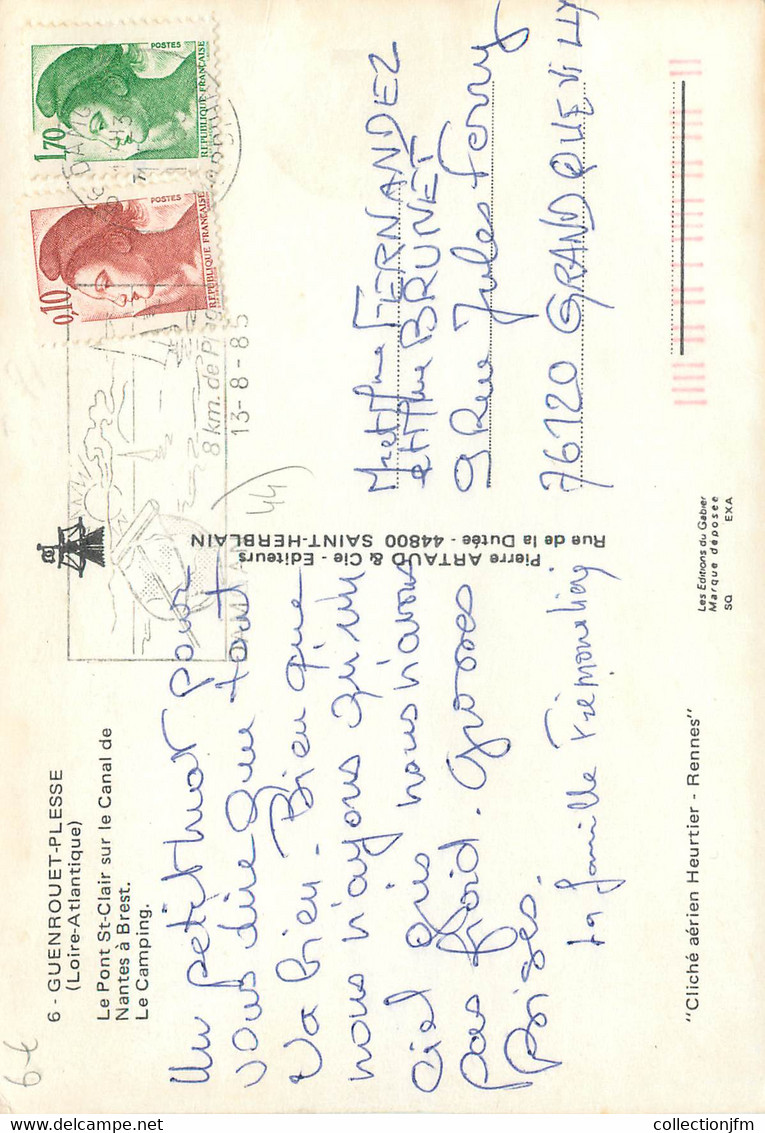 6 - GUENROUET-PLESSE
(Loire-Atlantique)
Le Pont St-Clair sur le Canal de
Nantes à Brest.
Le Camping.
Un petit mot pour
vous dire que tout
va bien. Bien que
nous n'ayons qu'un
ciel gris nous n'avons
pas froid. Grosses
Bises.
la famille
"Cliché aérien Heurtier - Rennes"
Pierre ARTAUD & Cie - Editeurs
Rue de la Dutée - 44800 SAINT-HERBLAIN
Les Editions du Gabier
Marque déposée
SQ EXA
1,70
POSTES
REPUBLIQUE FRANÇAISE
0,10
POSTES
REPUBLIQUE FRANÇAISE
8 km. de
13-8-85
(44)
Mr et Mme FERNANDEZ
et Mme BRUNET
9 Rue Jules Ferry
76120 GRAND QUEVILLY
6€
Delcampe.net
collectionjfm